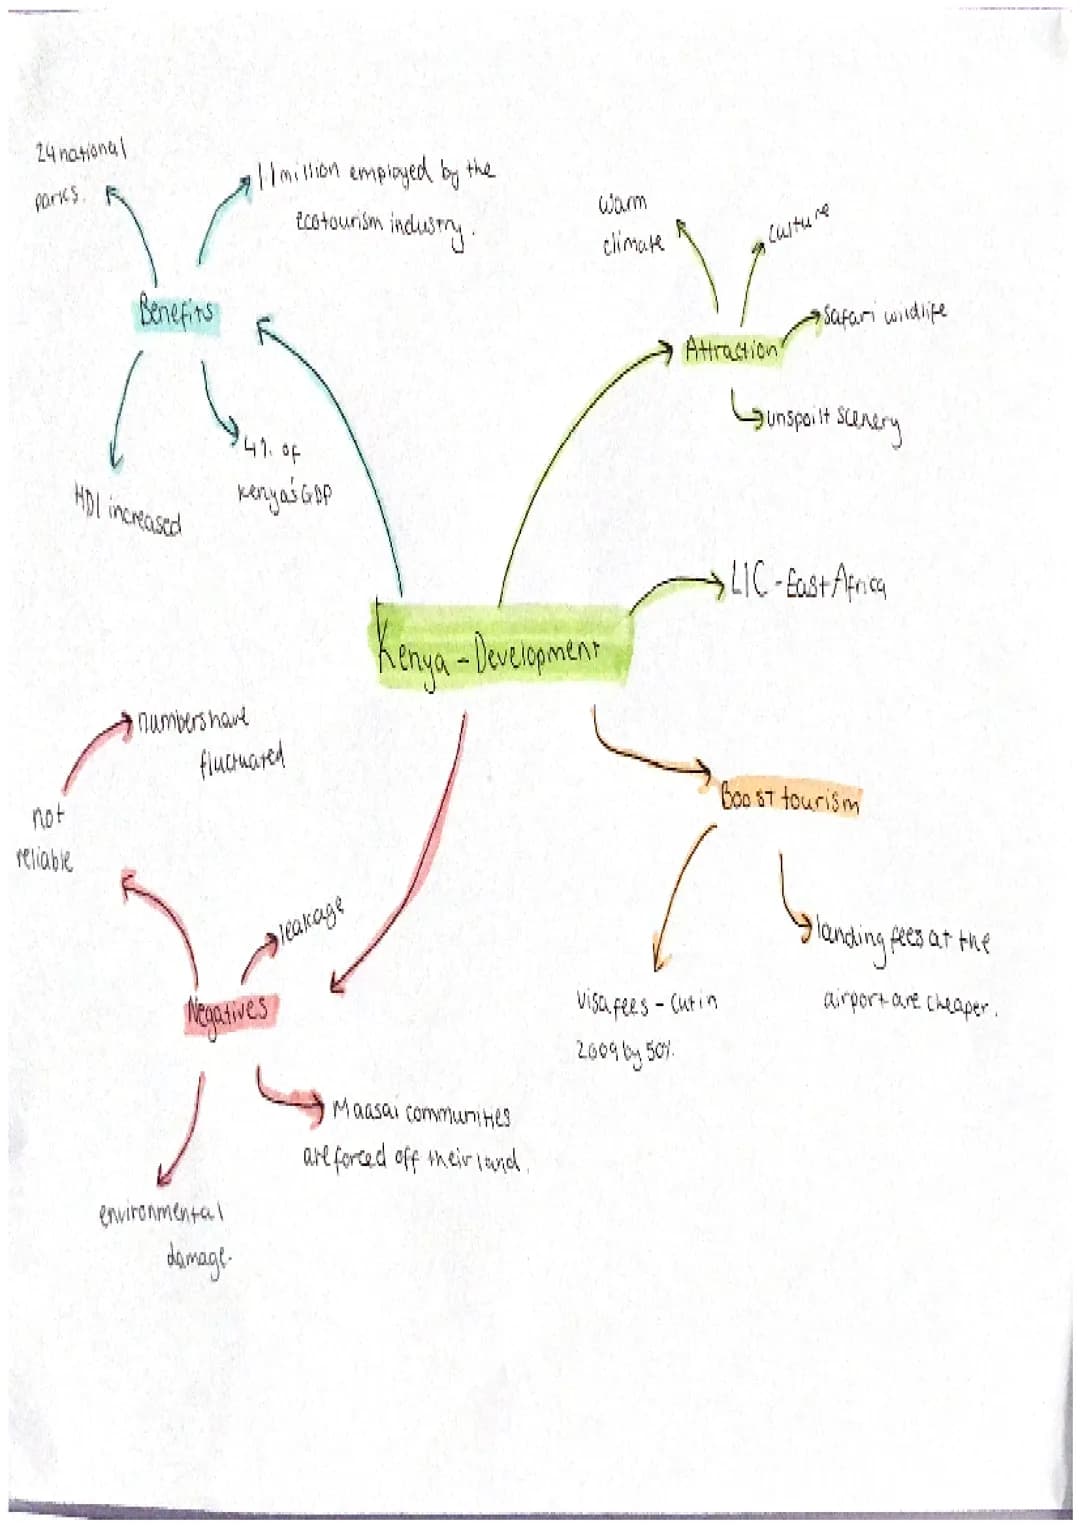 24 national
parks.
1.1 million employed by the
ecotourism industry.
Benefits
HDI increased
4% of
Kenya's GDP
warm
climate
culture
safari wildlife
Attraction
unspoilt scenery
LIC - East Africa
Kenya - Development
numbers have
fluctuated
not
reliable
leakage
Negatives
Maasai communities
are forced off their land.
environmental
damage.
Boost tourism
Visa fees - cut in
2009 by 50%.
landing fees at the
airport are cheaper.